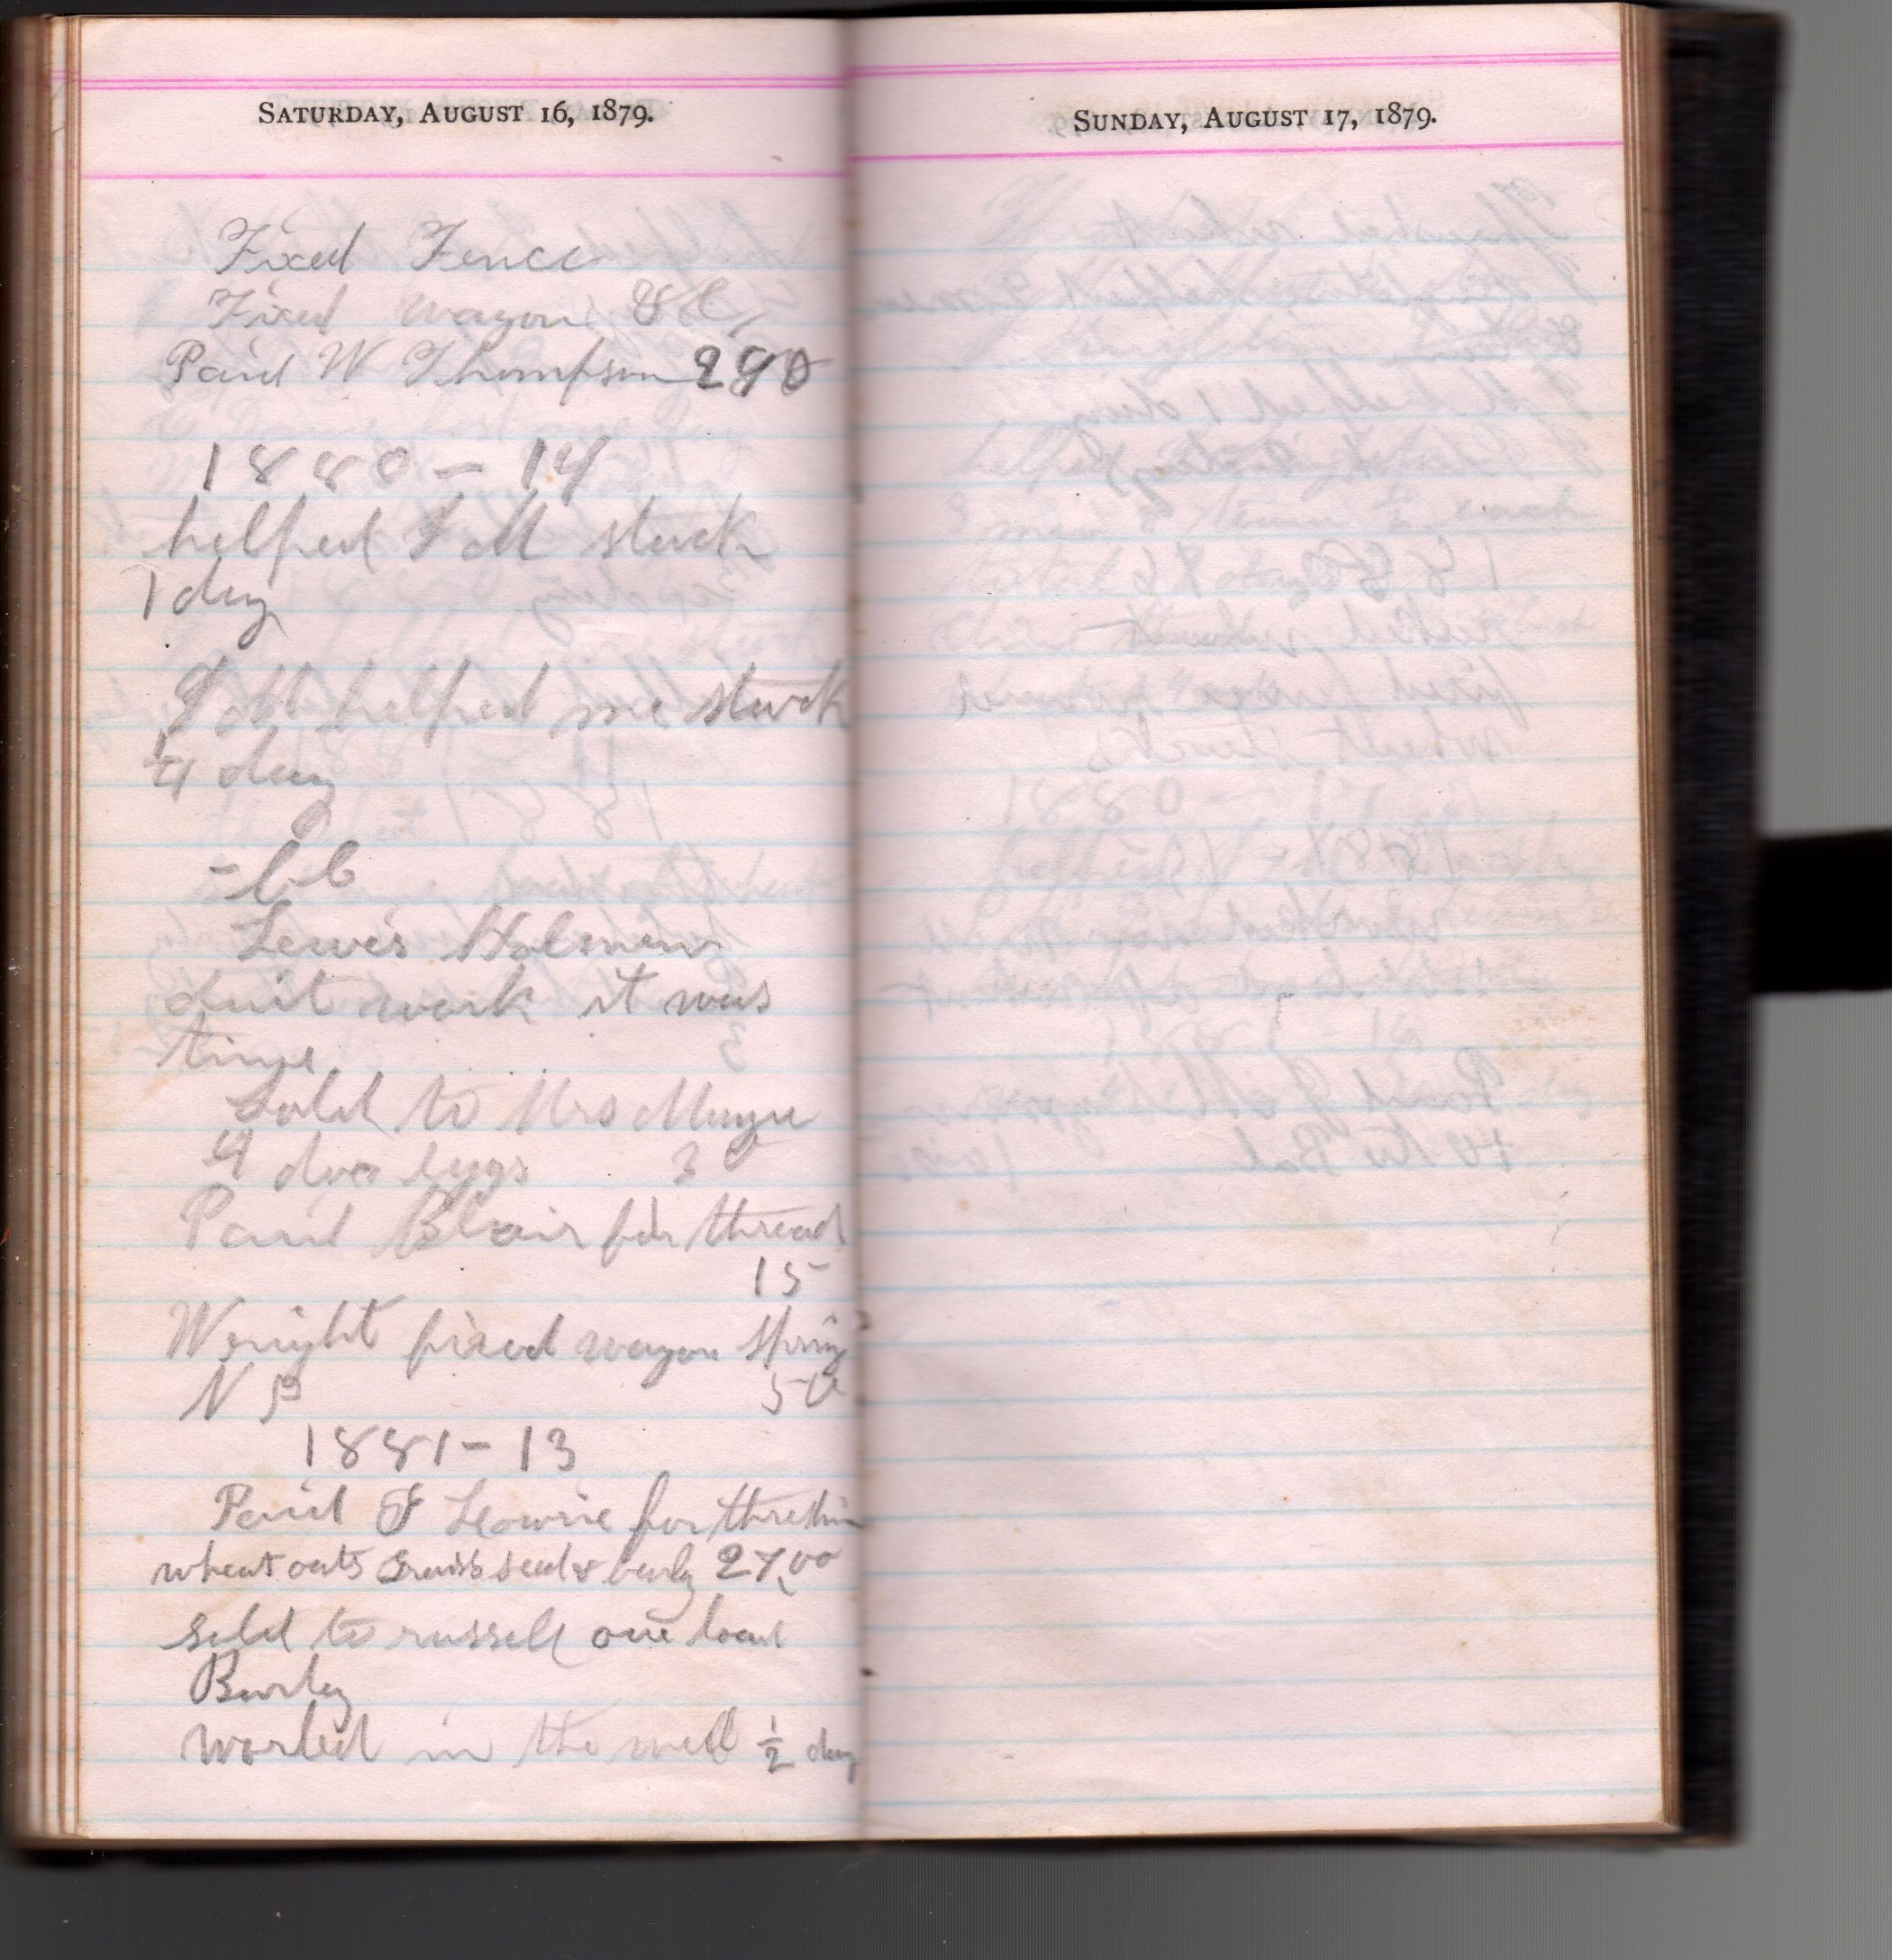 SATURDAY, AUGUST 16, 1879.
Fixed Fence
Fixed wagon
Paid W Thompson 290
1880 - 14
helped J M stack
1 day
J M helped me stack
1/4 day
Lewis Holmen
quit work it was
time
Sold to Mrs
4 doz eggs 3
Paid Blair for thread
15
Wright fixed wagon spring
N P 50
1881 - 13
Paid for threshin
wheat oats seed & barly 27,00
sold to russell one load
Barley
worked in the well 1/2 day
SUNDAY, AUGUST 17, 1879.